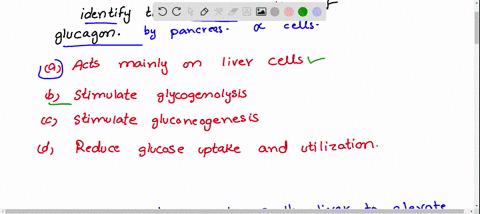 identify t
glucagon. by pancreas. α cells.
(a) Acts mainly on liver cells ✓
b) Stimulate glycogenolysis
(c) Stimulate gluconeogenesis
(d) Reduce glucose uptake and utilization.
liver to elevate